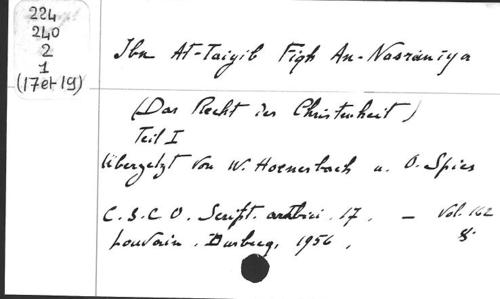 224
240
2
1
(17 et 19)
Ibn At-Taiyib Fiqh An-Nasrānīya
(Das Recht der Christenheit)
Teil I
Übersetzt von W. Hoenerbach u. O. Spies
C.S.C.O. Script. arabici. 17. - Vol. 162
Louvain. Durbecq, 1956.